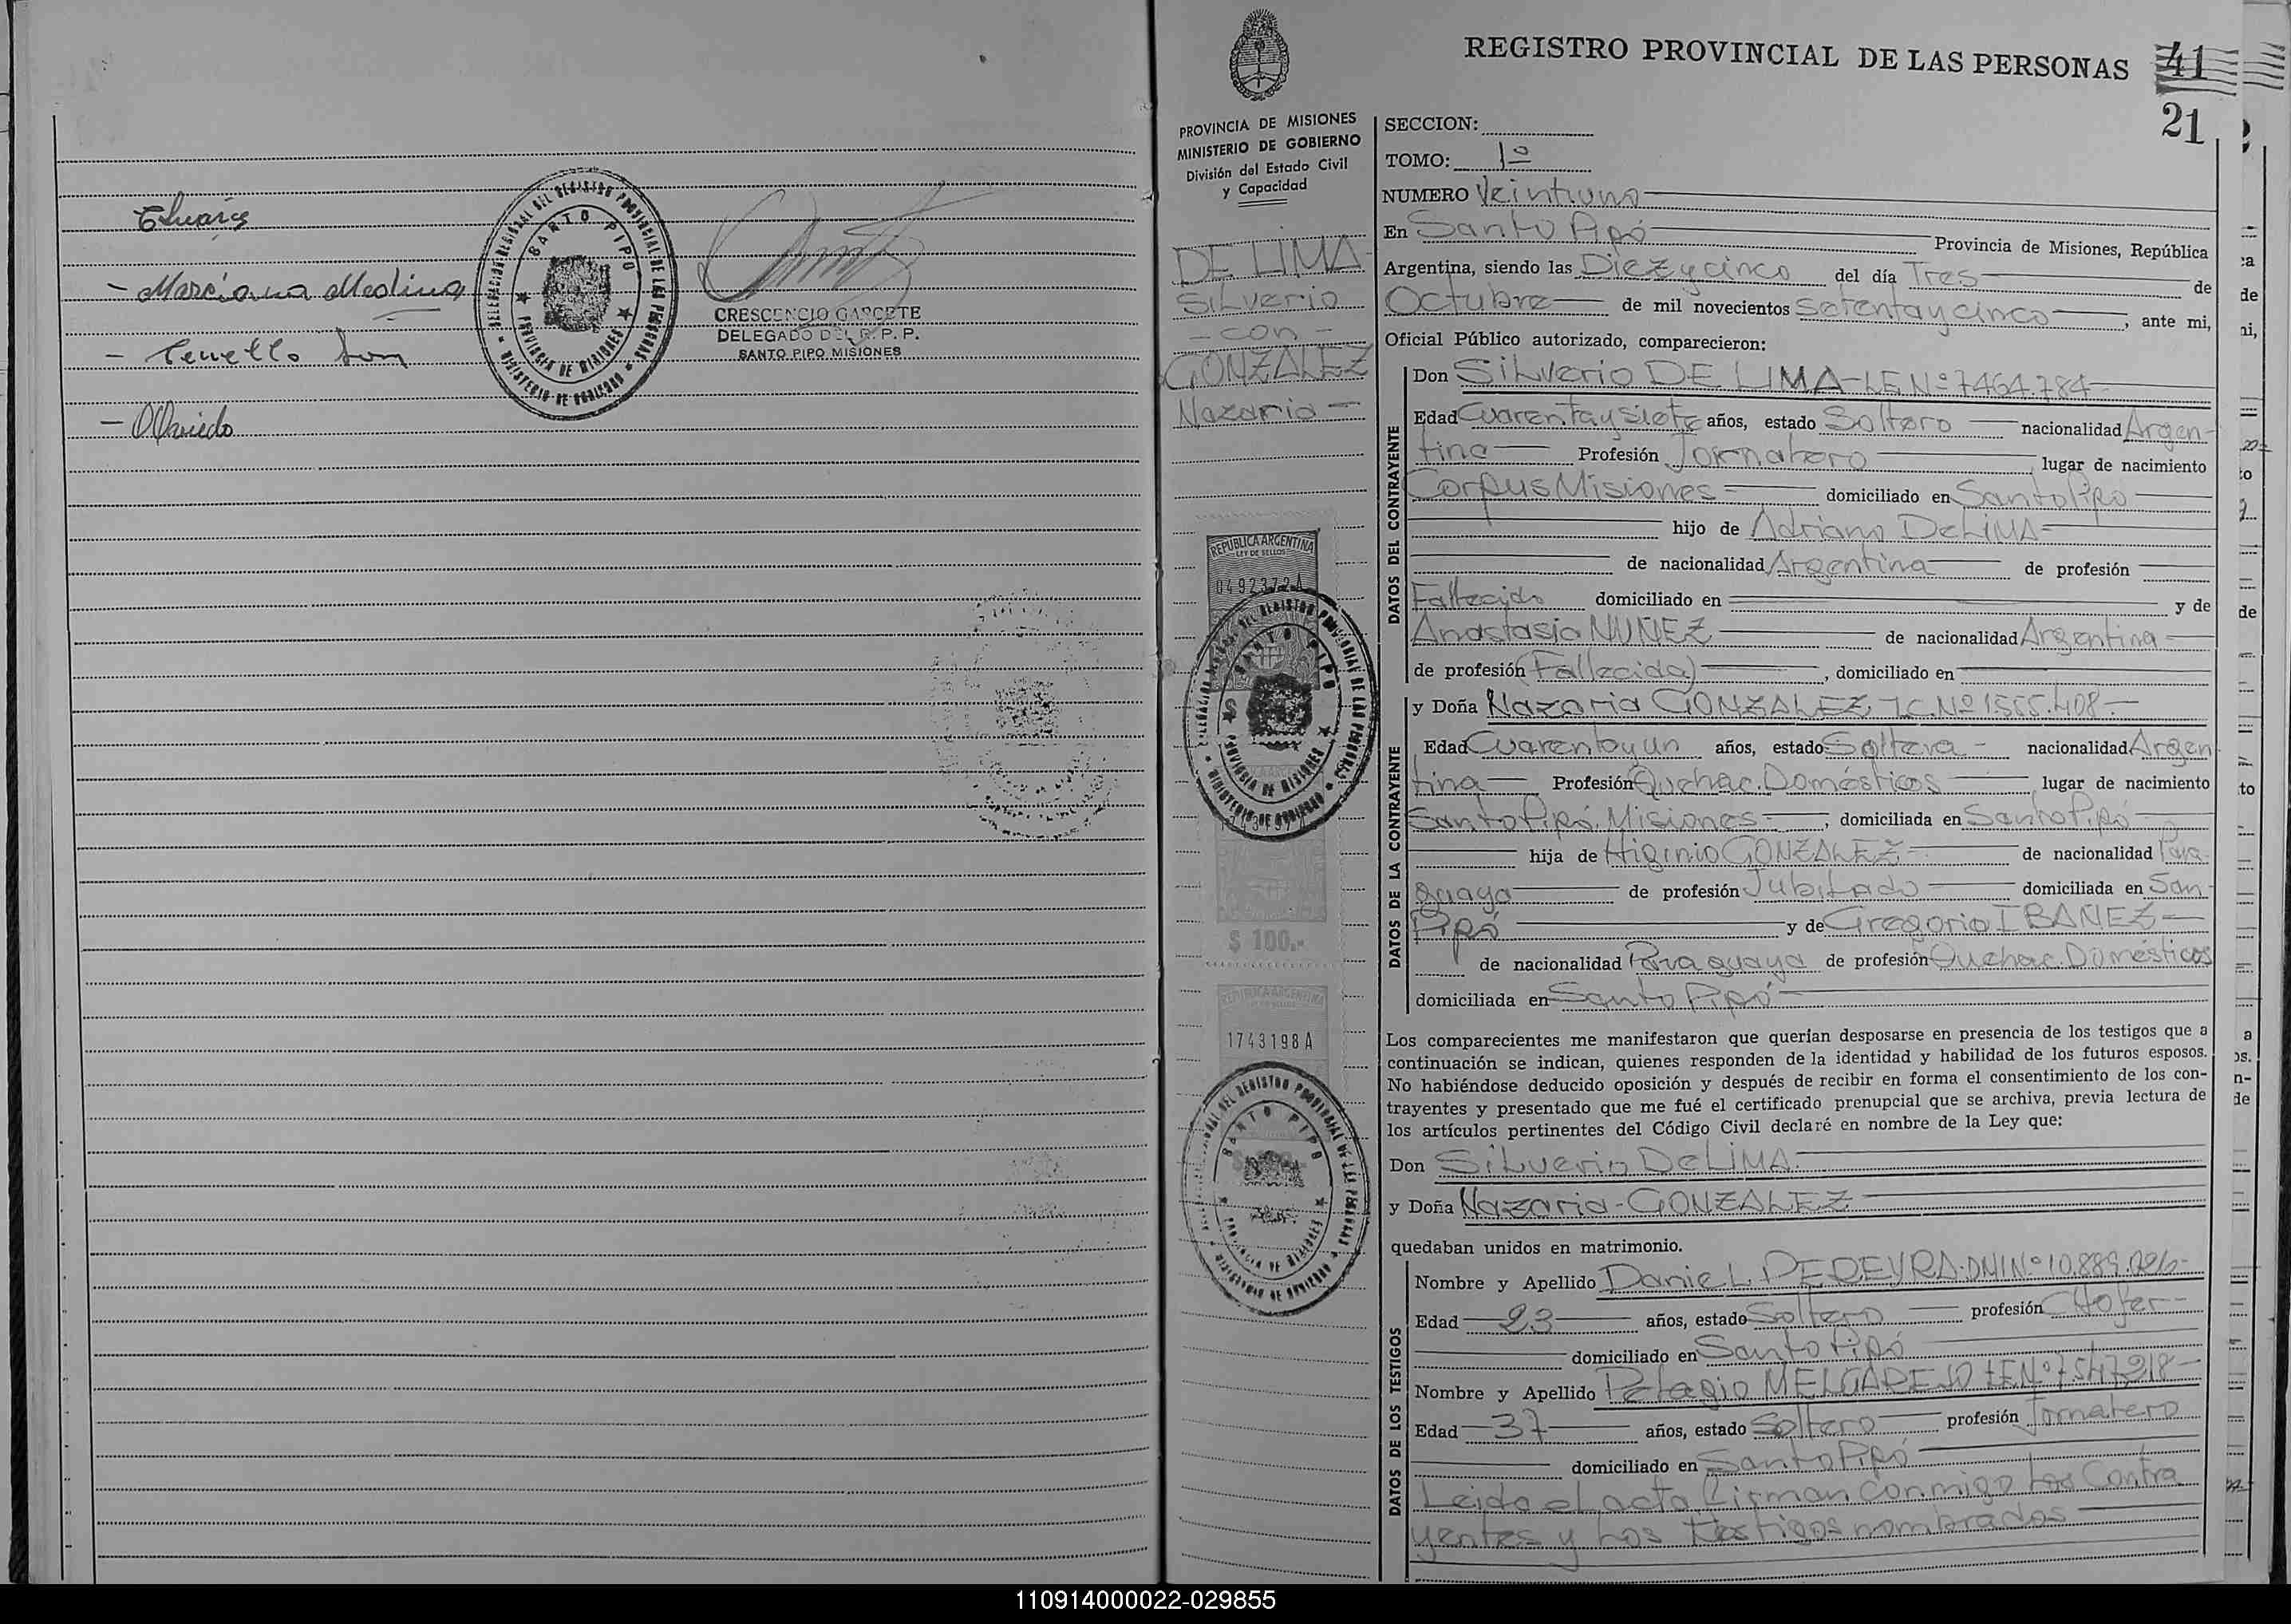 E Suarez
- Marciana Medina
- Tenello Dom
- O Oviedo
DELEGACION REGIONAL DEL REGISTRO PROVINCIAL DE LAS PERSONAS
SANTO PIPO
PROVINCIA DE MISIONES
MINISTERIO DE GOBIERNO
CRESCENCIO GARCETE
DELEGADO DEL R. P. P.
SANTO PIPO MISIONES
REGISTRO PROVINCIAL DE LAS PERSONAS 41
21
PROVINCIA DE MISIONES
MINISTERIO DE GOBIERNO
División del Estado Civil
y Capacidad
DE LIMA
Silverio
- con -
GONZALEZ
Nazaria -
REPUBLICA ARGENTINA
LEY DE SELLOS
0492372A
DELEGACION REGIONAL DEL REGISTRO PROVINCIAL DE LAS PERSONAS
SANTO PIPO
PROVINCIA DE MISIONES
MINISTERIO DE GOBIERNO
$ 100.-
REPUBLICA ARGENTINA
1743198A
REGISTRO PROVINCIAL DE LAS PERSONAS
SANTO PIPO
PROVINCIA DE MISIONES
MINISTERIO DE GOBIERNO
SECCION:
TOMO: 1º
NUMERO Veintiuno
En Santo Pipó Provincia de Misiones, República
Argentina, siendo las Diez y cinco del día Tres de
Octubre de mil novecientos Setenta y cinco, ante mi,
Oficial Público autorizado, comparecieron:
DATOS DEL CONTRAYENTE
Don Silverio DE LIMA - L.E.Nº 7464.784
Edad Cuarenta y siete años, estado Soltero nacionalidad Argen-
tina Profesión Jornalero lugar de nacimiento
Corpus Misiones - domiciliado en Santo Pipo
hijo de Adriano De LIMA
de nacionalidad Argentina de profesión
Fallecido domiciliado en y de
Anastasia NUÑEZ de nacionalidad Argentina -
de profesión (Fallecida), domiciliado en
DATOS DE LA CONTRAYENTE
y Doña Nazaria GONZALEZ I.C.Nº 1555.408 -
Edad Cuarenta y un años, estado Soltera - nacionalidad Argen
tina Profesión Quehac. Domésticos lugar de nacimiento
Santo Pipó. Misiones -, domiciliada en Santo Pipó
hija de Higinio GONZALEZ de nacionalidad Para-
guaya de profesión Jubilado domiciliada en San-
Pipó y de Gregoria IBAÑEZ
de nacionalidad Paraguaya de profesión Quehac. Domésticos
domiciliada en Santo Pipó
Los comparecientes me manifestaron que querían desposarse en presencia de los testigos que a
continuación se indican, quienes responden de la identidad y habilidad de los futuros esposos.
No habiéndose deducido oposición y después de recibir en forma el consentimiento de los con-
trayentes y presentado que me fué el certificado prenupcial que se archiva, previa lectura de
los artículos pertinentes del Código Civil declaré en nombre de la Ley que:
Don Silverio De LIMA
y Doña Nazaria - GONZALEZ
quedaban unidos en matrimonio.
DATOS DE LOS TESTIGOS
Nombre y Apellido Daniel PEREYRA. DNI Nº 10.889.
Edad 23 años, estado Soltero profesión Chofer -
domiciliado en Santo Pipó
Nombre y Apellido Pelagio MELGAREJO L.E.Nº 7547.218 -
Edad 37 años, estado Soltero profesión Jornalero
domiciliado en Santo Pipó
Leida el acta firman conmigo los Contra
yentes y los testigos nombrados
110914000022-029855